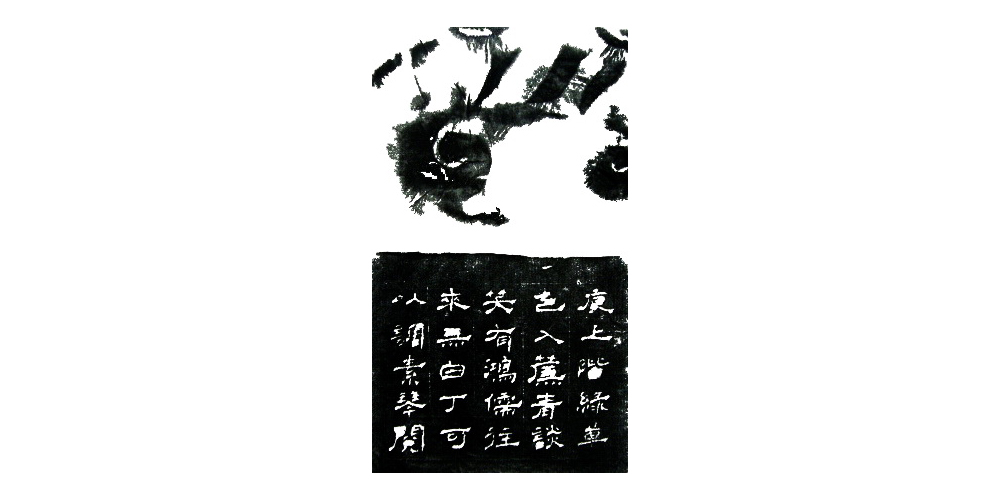 痕上階緑草
色入簾青談
笑有鴻儒往
來無白丁可
以調素琴閱